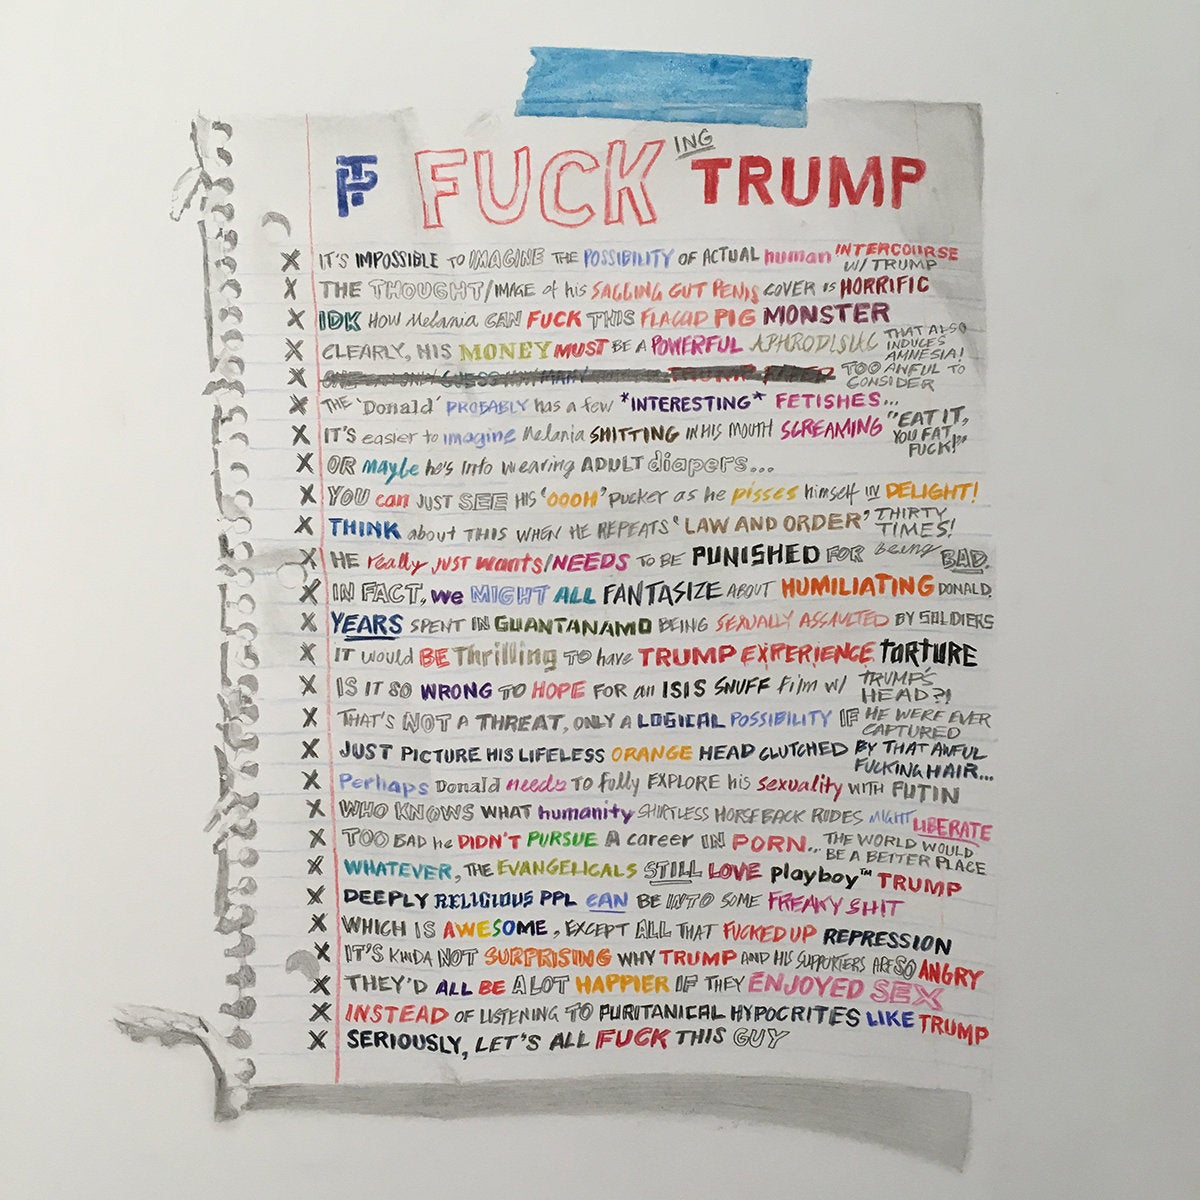 TP FUCKING TRUMP
X IT'S IMPOSSIBLE TO IMAGINE THE POSSIBILITY OF ACTUAL human INTERCOURSE W/ TRUMP
X THE THOUGHT/IMAGE of his SAGGING GUT PENIS COVER IS HORRIFIC
X IDK HOW Melania CAN FUCK THIS FLACID PIG MONSTER
X CLEARLY, HIS MONEY MUST BE A POWERFUL APHRODISIAC THAT ALSO INDUCES AMNESIA!
X TOO AWFUL TO CONSIDER
X THE 'Donald' PROBABLY has a few *INTERESTING* FETISHES...
X IT'S easier to imagine Melania SHITTING IN HIS MOUTH SCREAMING "EAT IT, YOU FAT FUCK!"
X OR Maybe he's into wearing ADULT diapers...
X YOU can JUST SEE HIS 'OOOH' pucker as he pisses himself IN DELIGHT!
X THINK about THIS WHEN HE REPEATS 'LAW AND ORDER' THIRTY TIMES!
X HE really JUST wants/NEEDS TO BE PUNISHED FOR being BAD.
X IN FACT, we MIGHT ALL FANTASIZE ABOUT HUMILIATING DONALD,
X YEARS SPENT IN GUANTANAMO BEING SEXUALLY ASSAULTED BY SOLDIERS
X IT would BE Thrilling TO have TRUMP EXPERIENCE TORTURE
X IS IT SO WRONG TO HOPE FOR an ISIS SNUFF Film w/ TRUMP'S HEAD?!
X THAT'S NOT A THREAT, ONLY A LOGICAL POSSIBILITY IF HE WERE EVER CAPTURED
X JUST PICTURE HIS LIFELESS ORANGE HEAD CLUTCHED BY THAT AWFUL FUCKING HAIR...
X Perhaps Donald needs TO fully EXPLORE his sexuality WITH PUTIN
X WHO KNOWS WHAT humanity SHIRTLESS HORSEBACK RIDES MIGHT LIBERATE
X TOO BAD he DIDN'T PURSUE A career IN PORN... THE WORLD WOULD BE A BETTER PLACE
X WHATEVER, THE EVANGELICALS STILL LOVE playboy™ TRUMP
X DEEPLY RELIGIOUS PPL CAN BE INTO SOME FREAKY SHIT
X WHICH IS AWESOME, EXCEPT ALL THAT FUCKED UP REPRESSION
X IT'S KINDA NOT SURPRISING WHY TRUMP AND HIS SUPPORTERS ARE SO ANGRY
X THEY'D ALL BE A LOT HAPPIER IF THEY ENJOYED SEX
X INSTEAD OF LISTENING TO PURITANICAL HYPOCRITES LIKE TRUMP
X SERIOUSLY, LET'S ALL FUCK THIS GUY